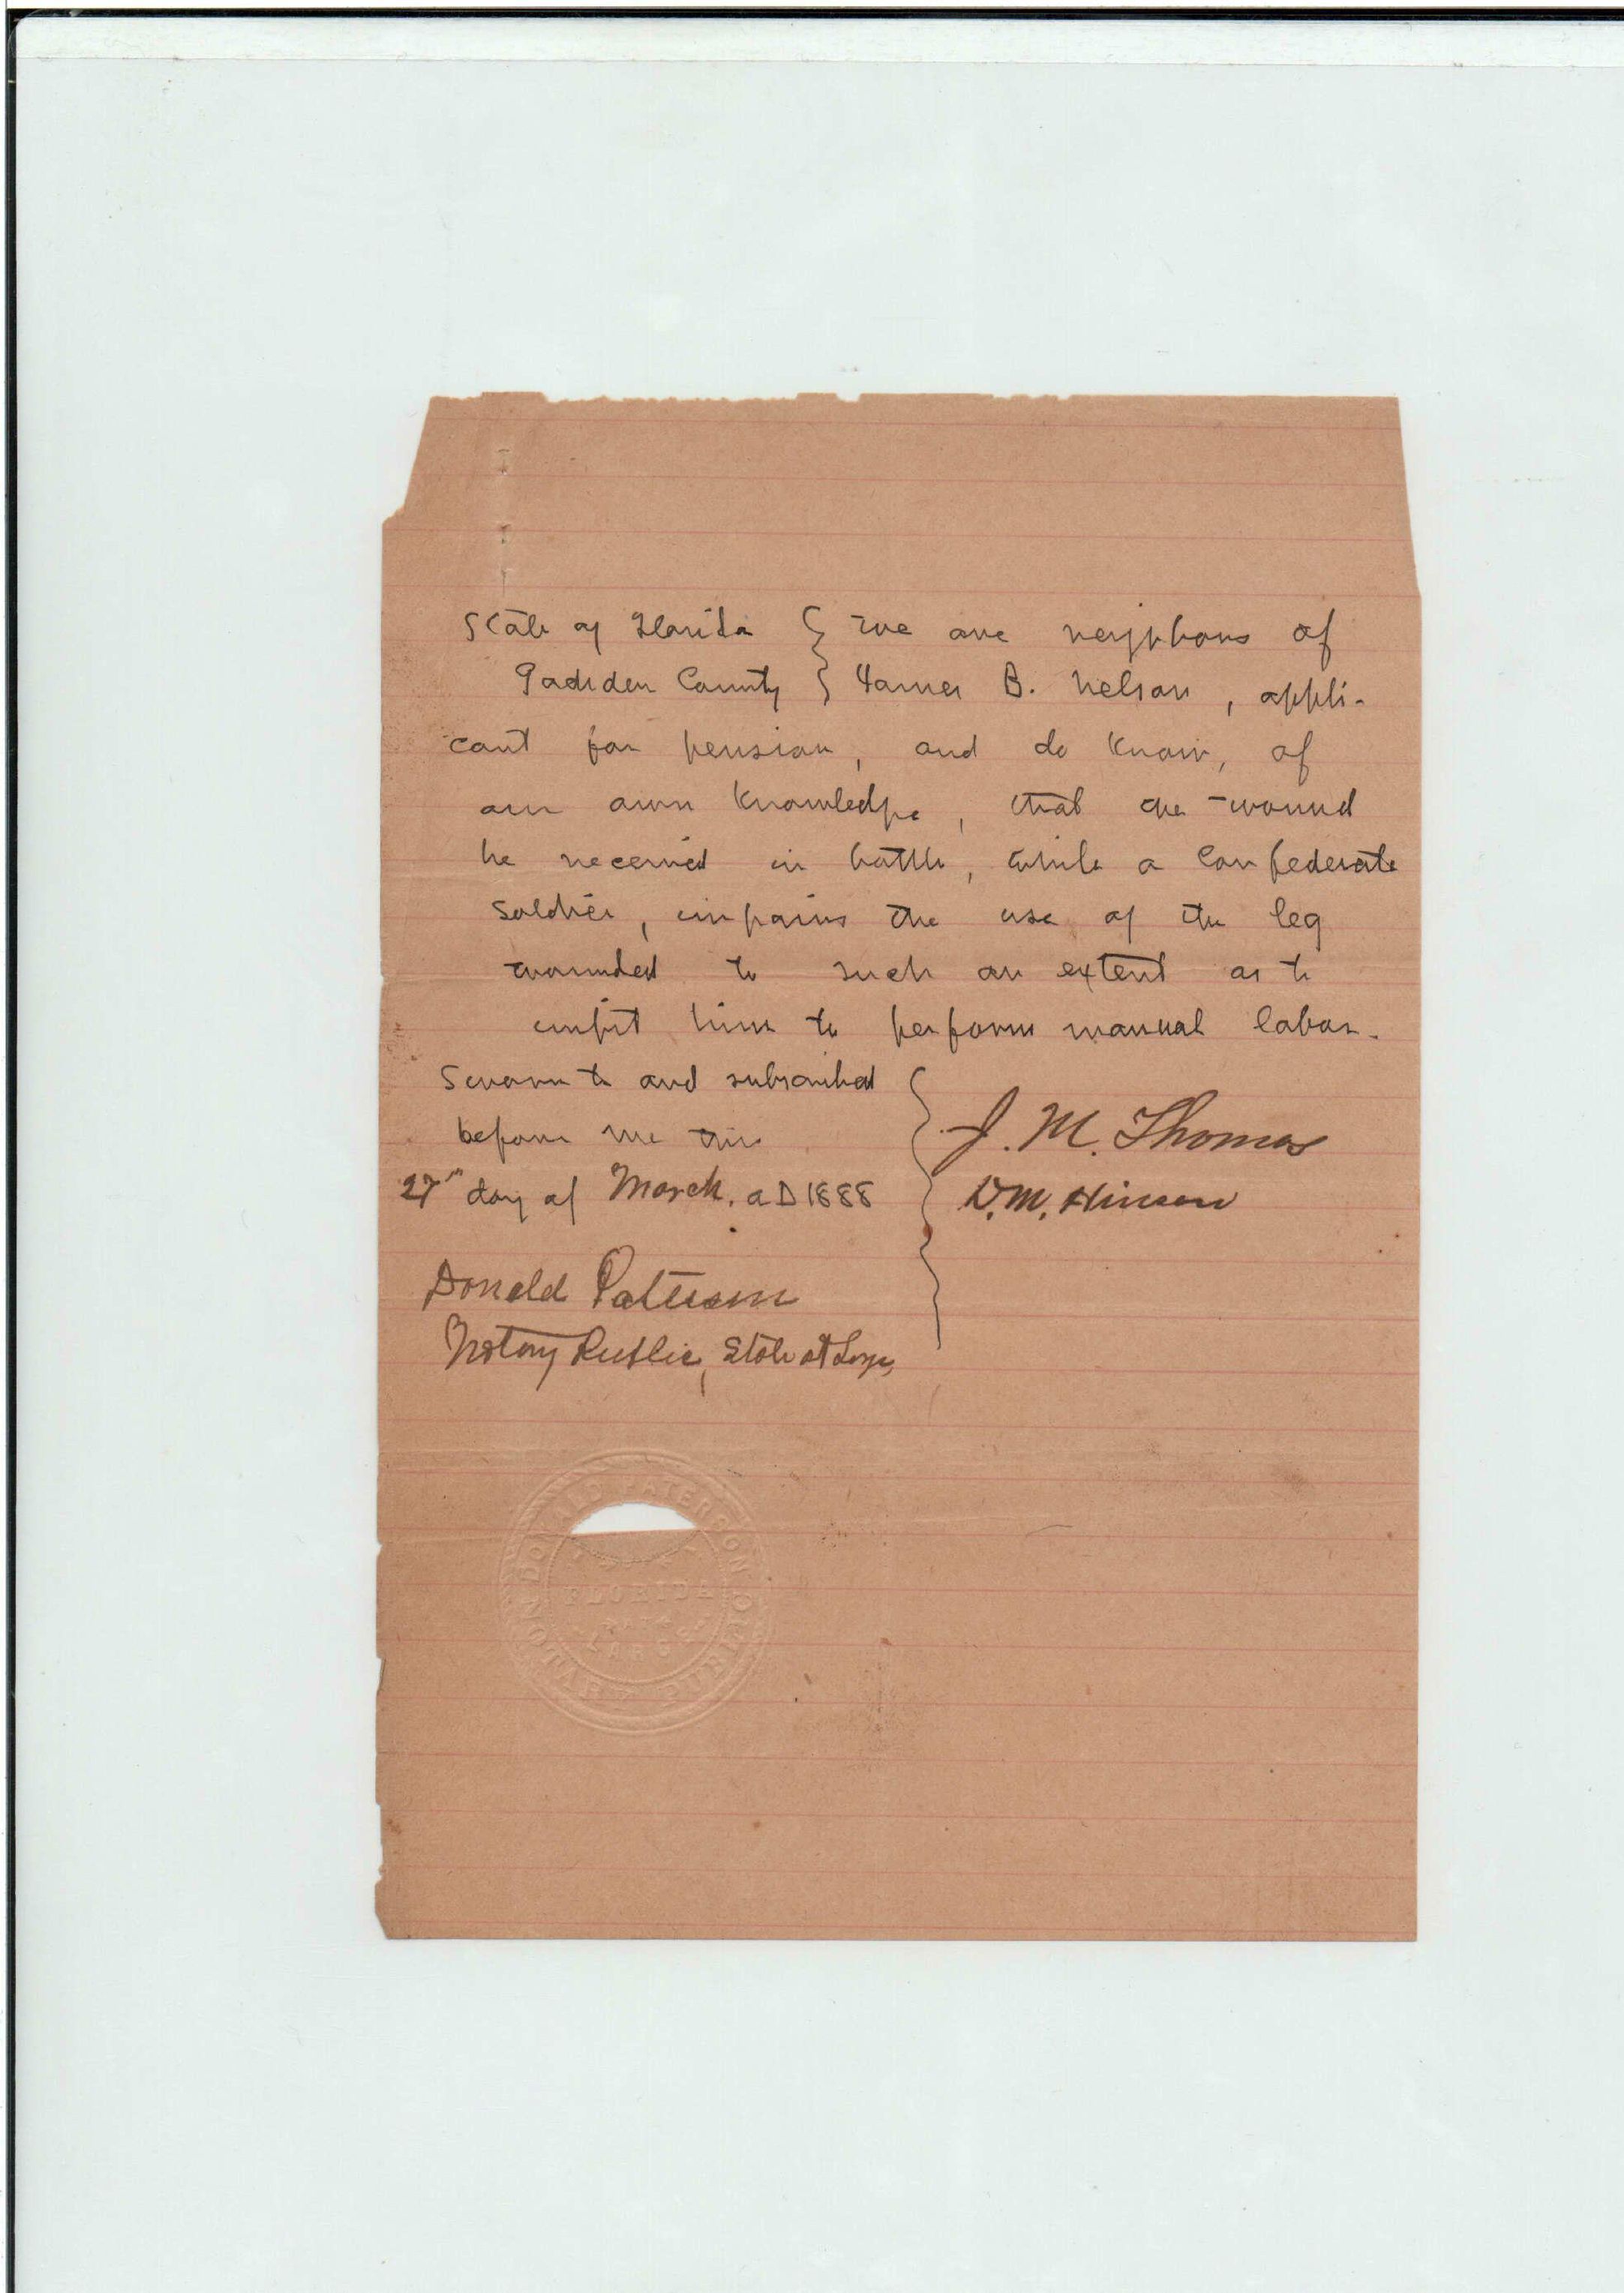 State of Florida } We are neighbors of
Gadsden County } James B. Nelson, appli-
cant for pension, and do know, of
our own knowledge, that the wound
he received in battle, while a Confederate
soldier, impairs the use of the leg
wounded to such an extent as to
unfit him to perform manual labor.
Sworn to and subscribed
before me this
27" day of March. AD 1888
J. M. Thomas
D. M. Hinson
Donald Paterson
Notary Public, State at Large
DONALD PATERSON
FLORIDA
LARGE
NOTARY PUBLIC